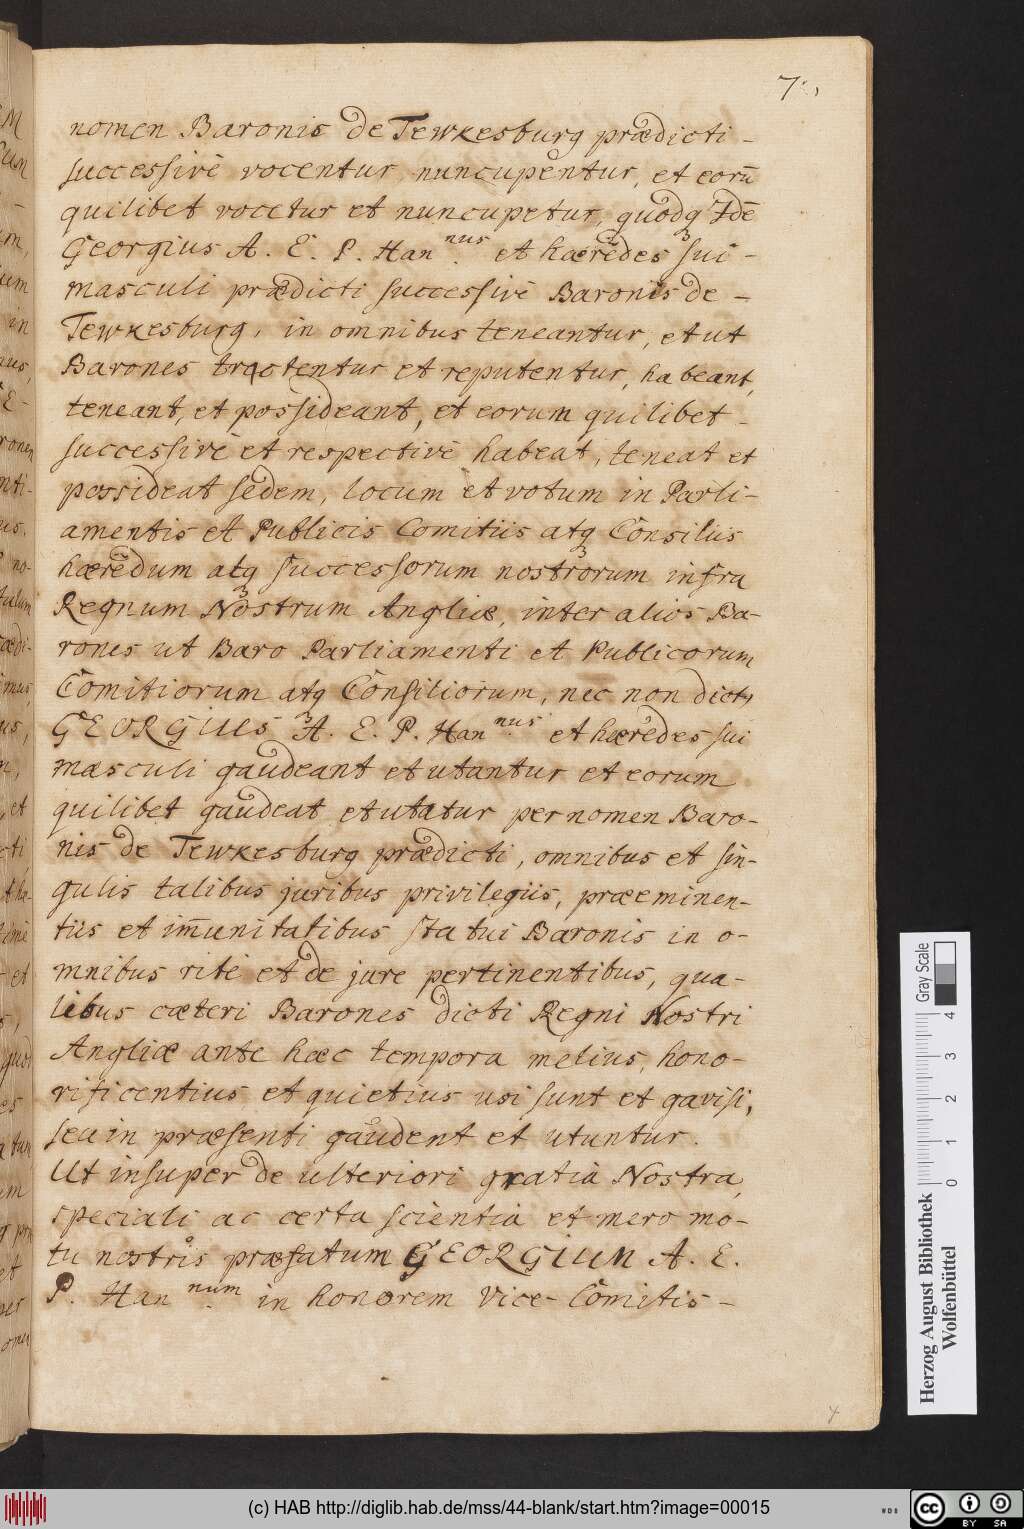 7.,
nomen Baronis de Tewkesburg prædicti -
successivè vocentur, nuncupentur, et eorū
quilibet vocetur et nuncupetur, quodq3 Idē
Georgius A. E. P. Han^nus. et hærēdes sui -
masculi prædicti successivè Baronis de -
Tewkesburg, in omnibus teneantur, et ut
Barones tractentur et reputentur, habeant,
teneant, et possideant, et eorum quilibet -
successivè et respectivè habeat, teneat et
possideat sedem, locum et votum in Parli-
amentis et Publicis Comitiis atq3 Consiliis
hærēdum atq3 successorum nostrorum infra
Regnum Nostrum Angliæ, inter alios Ba-
rones ut Baro Parliamenti et Publicorum
Comitiorum atq3 Consiliorum, nec non dictus
GEORGIUS A. E. P. Han^nus. et hæredes sui
masculi gaudeant et utantur et eorum
quilibet gaudeat et utatur per nomen Baro-
nis de Tewkesburg prædicti, omnibus et sin-
gulis talibus juribus privilegiis, præeminen-
tiis et im̄unitatibus Statui Baronis in o-
mnibus ritè et de jure pertinentibus, qua-
libus cæteri Barones dicti Regni Nostri
Angliæ ante hæc tempora melius, hono-
rificentius et quietius usi sunt et gavisi,
seu in præsenti gaudent et utuntur.
Ut insuper de ulteriori gratià Nostra,
speciali ac certa scientià et mero mo-
tu nostris præfatum GEORGIUM A. E.
P. Han^num. in honorem Vice-Comitis -
Herzog August Bibliothek
Wolfenbüttel
0 1 2 3 4
Gray Scale
(c) HAB http://diglib.hab.de/mss/44-blank/start.htm?image=00015
WDB
cc BY SA